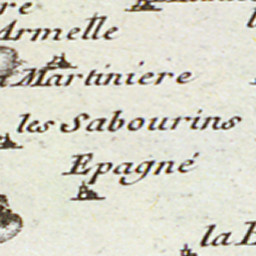 re
Armelle
Martiniere
les Sabourins
Epagné
la